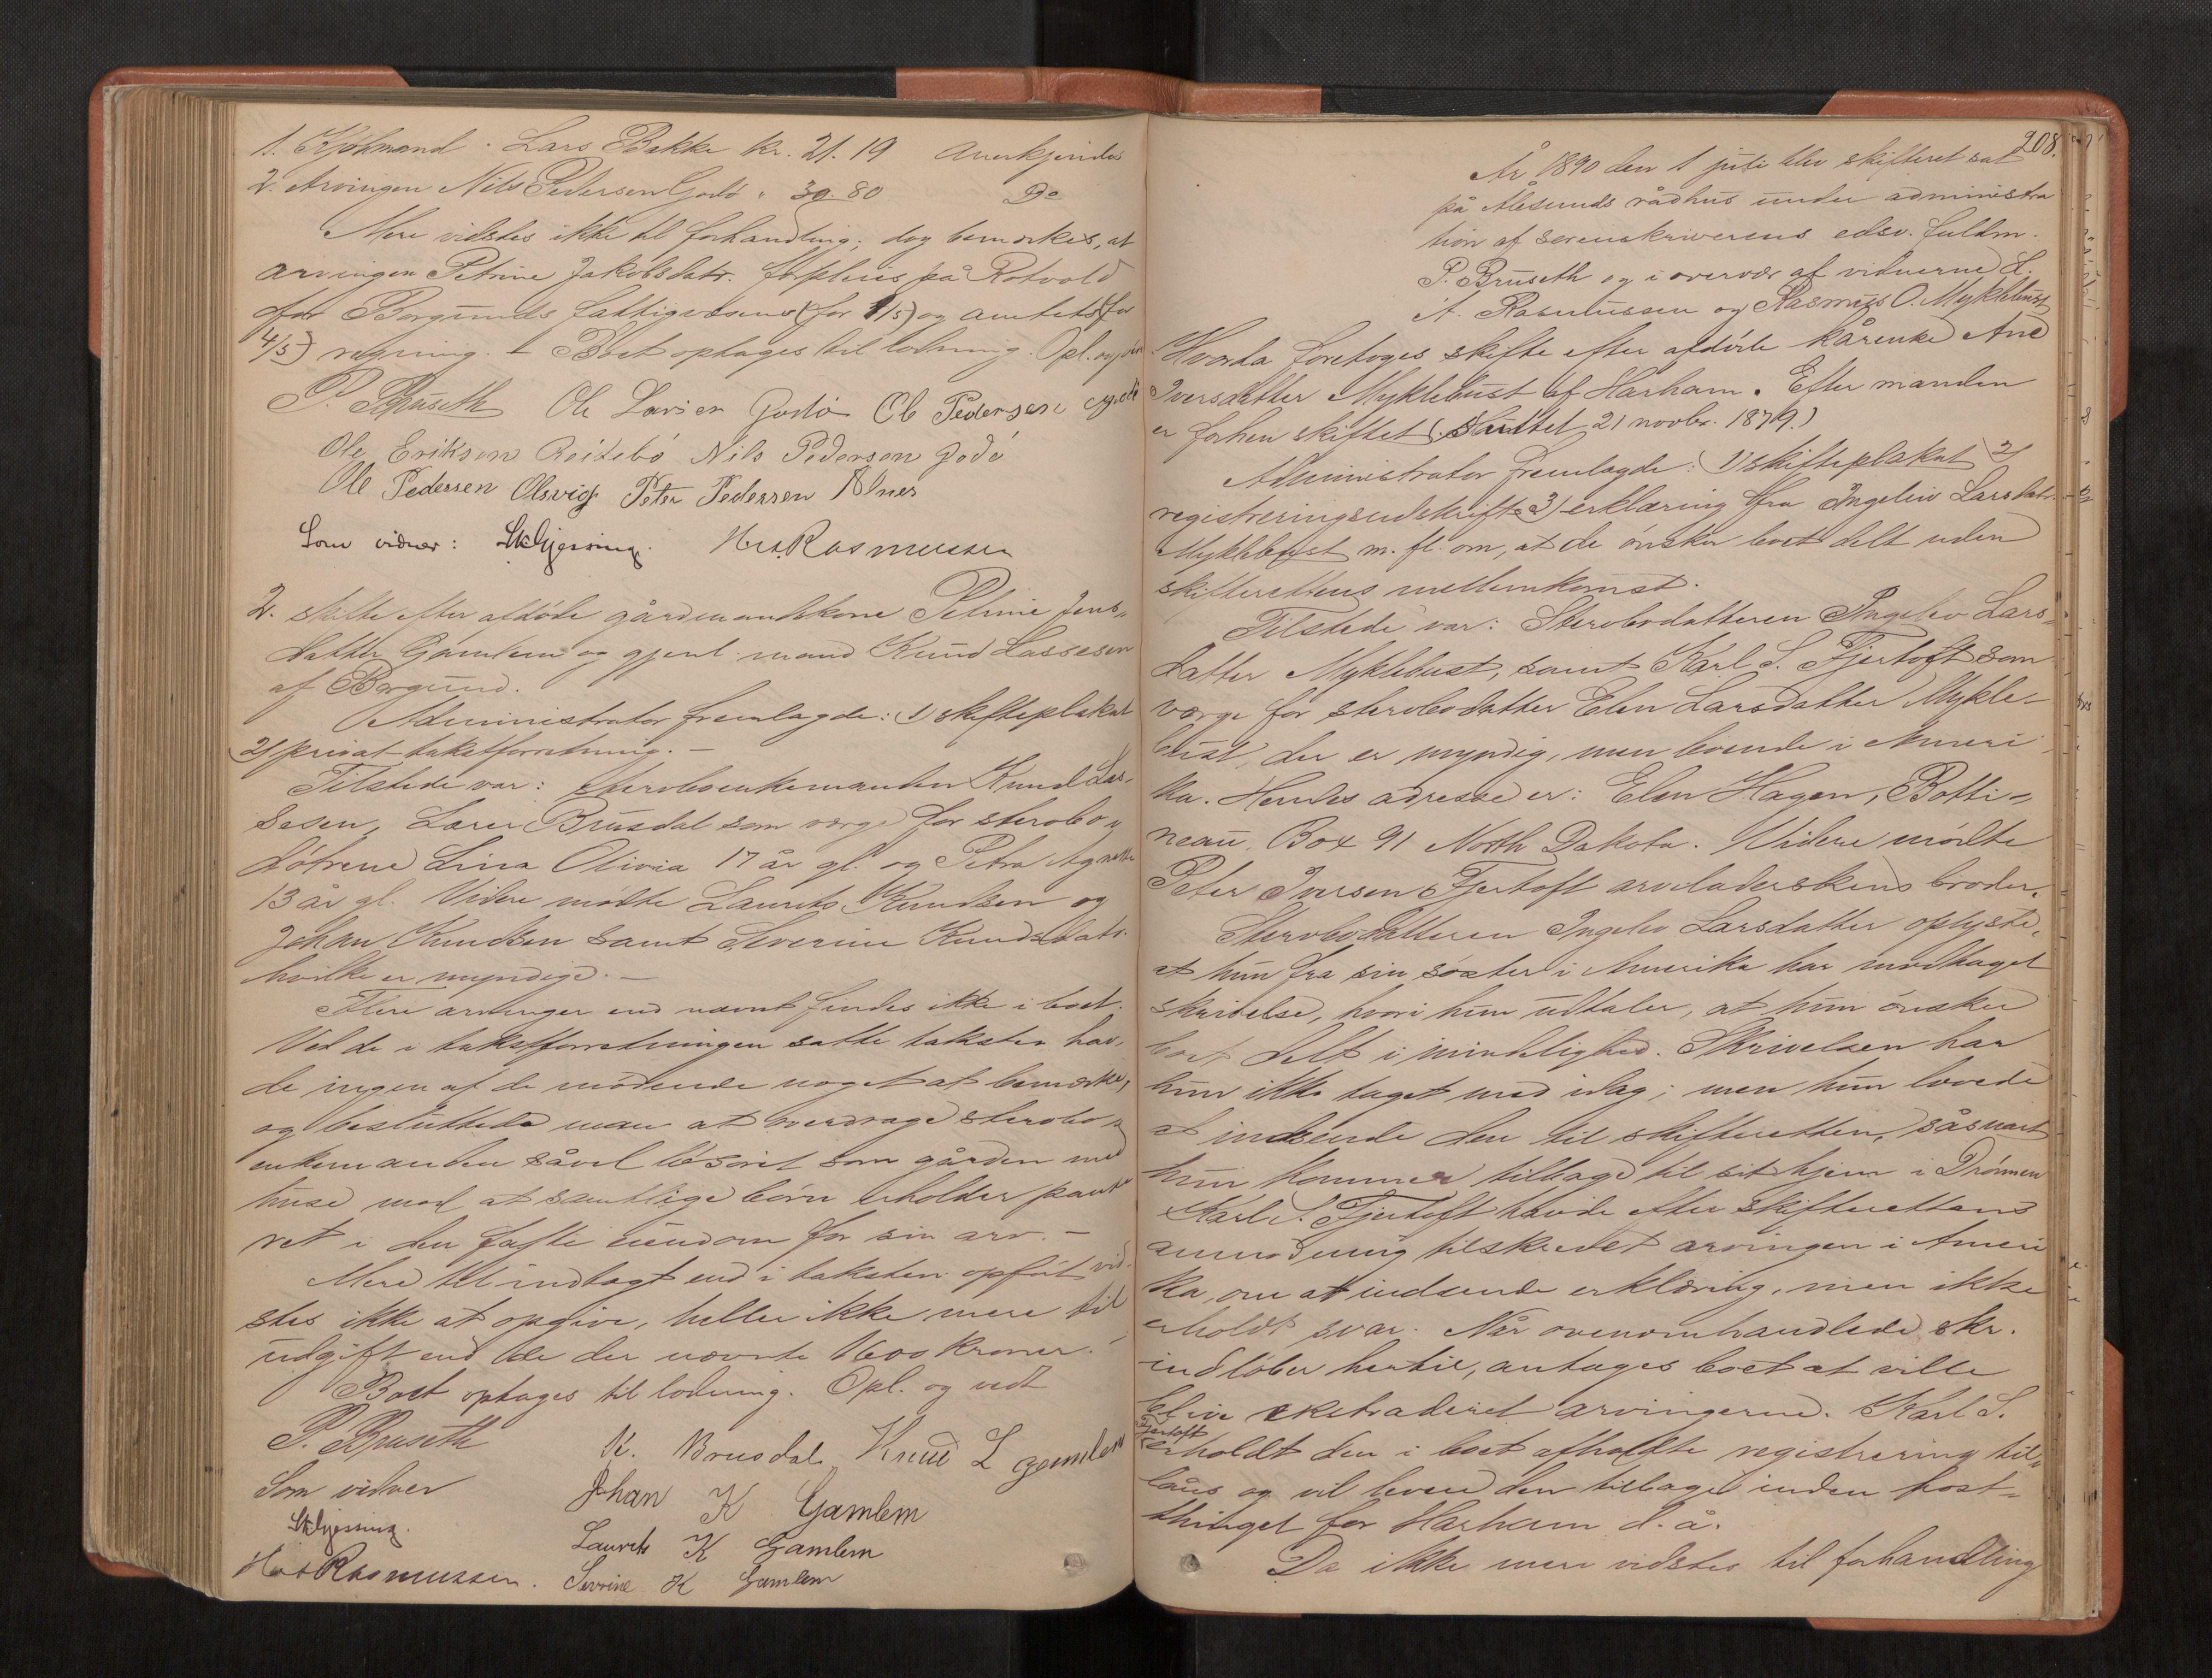 1. Kjøbmand Lars Bakke kr. 21.19 Anerkjendes
2. Arvingen Nils Pedersen Godö " 39.80 Do
Mere vidstes ikke til forhandling; dog bemærkes, at
arvingen Petrine Jakobsdatr. forpleies på Rotvold
for Borgunds fattigvæsens (for 1/5) og amtets (for
4/5) regning. - Boet optages til lodning. Opl. og
P. Bruseth Ole Larsen Godö Ole Pedersen
Ole Eriksen Reitebö Nils Pedersen Godö
Ole Pedersen Olsvig Peter Pedersen Alnes
Som vidner: Rasmussen
2. skifte efter afdøde gårdmandskone Petrine Jens-
datter Gamlem og gjenl. mand Knud Lassesen
af Borgund.
Administrator fremlagde: 1) skifteplakat
2) privat takstforretning. -
Tilstede var: Stervboenkemanden Knud Las-
sesen, Lærer Brusdal som værge for stervbo-
døtrene Lina Olivia 17 år gl. og Petra Agnette
13 år gl. Videre mødte Laurits Knudsen og
Johan Knudsen samt Severine Knudsdatr.
hvilke er myndige. -
Flere arvinger end nævnt findes ikke i boet.
Ved de i takstforretningen satte takster hav-
de ingen af de mødende noget at bemærke,
og besluttede man at overdrage stervbo-
enkemanden såvel løsøret som gården med
huse mod at samtlige børn erholder pante
ret i den faste eiendom for sin arv. -
Mere til indtægt end i taksten opført vid-
stes ikke at opgive, heller ikke mere til
udgift end de der nævnte 1600 kroner. -
Boet optages til lodning. Opl. og vedt
P. Bruseth K. Brusdal Knud L Gamlem
Som vidner Johan K Gamlem
Laurits K Gamlem
Rasmussen. Severine K Gamlem
208.
År 1890 den 1 juli blev skifteret sat
på Ålesunds rådhus under administra
tion af sorenskriverens edsv. fuldm.
P. Bruseth og i overvær af vidnerne H.
A. Rasmussen og Rasmus O. Myklebust
Hvorda foretoges skifte efter afdøde kårenke Ane
Iversdatter Myklebust af Harham. Efter manden
er forhen skiftet (Sluttet 21 novbr. 1879.)
Administrator fremlagde: 1) skifteplakat 2)
registreringsudskrift 3) erklæring fra Ingeliv Larsdatr.
Myklebust m. fl. om, at de ønsker boet delt uden
skifterettens mellemkomst.
Tilstede var: Stervbodatteren Ingeliv Lars-
datter Myklebust, samt Karl S. Fjertoft som
værge for stervbodatter Elen Larsdatter Mykle-
bust, der er myndig, men boende i Ameri
ka. Hendes adresse er: Elen Hagen, Botti-
neau, Box 91 North Dakota. Videre mødte
Peter Iversen Fjertoft arveladerskens broder.
Stervbodatteren Ingeliv Larsdatter oplyste,
at hun fra sin søster i Amerika har modtaget
skrivelse, hvori hun udtaler, at hun ønsker
boet delt i mindelighed. Skrivelsen har
hun ikke taget med idag; men hun lovede
at indsende den til skifteretten, såsnart
hun kommer tilbage til sit hjem i Drönnen
Karl S. Fjertoft havde efter skifterettens
anmodning tilskrevet arvingen i Ameri
ka, om at indsende erklæring, men ikke
erholdt svar. Når ovenomhandlede skr.
indløber hertil, antages boet at ville
blive ekstraderet arvingerne. Karl S.
Fjertoft
erholdt den i boet afholdte registrering til-
låns og vil levere den tilbage inden høst-
thinget for Harham d. å.
Da ikke mere vidstes til forhandling